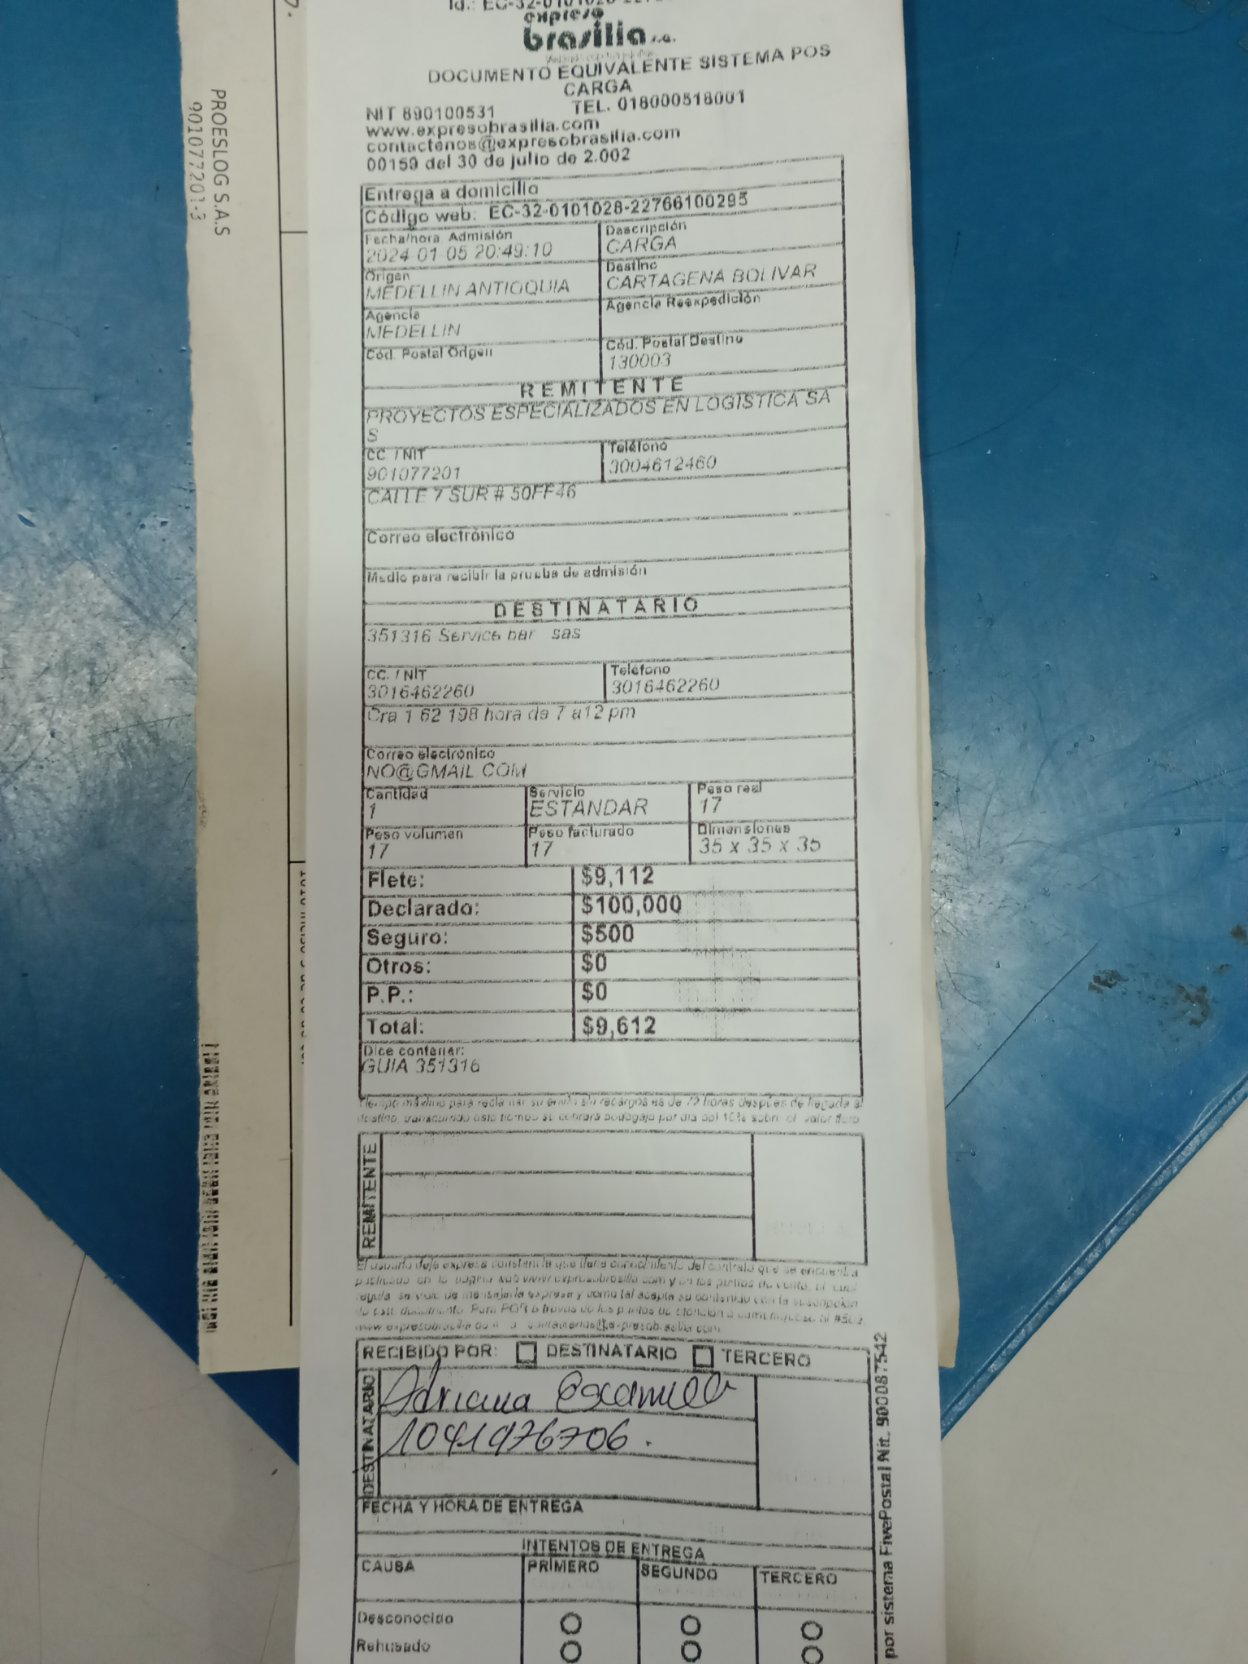 expreso
brasilia s.a.
DOCUMENTO EQUIVALENTE SISTEMA POS
CARGA
NIT 890100531 TEL. 018000518001
www.expresobrasilia.com
contactenos@expresobrasilia.com
00159 del 30 de julio de 2.002
PROESLOG S.A.S
901077201-3
Entrega a domicilio
Código web: EC-32-0101028-22766100295
Fecha/hora Admisión
2024-01-05 20:49:10
Descripción
CARGA
Origen
MEDELLIN ANTIOQUIA
Destino
CARTAGENA BOLIVAR
Agencia
MEDELLIN
Agencia Reexpedición
Cód. Postal Origen
Cód. Postal Destino
130003
REMITENTE
PROYECTOS ESPECIALIZADOS EN LOGISTICA SA
S
CC. / NIT
901077201
Teléfono
3004612460
CALLE 7 SUR # 50FF46
Correo electrónico
Medio para recibir la prueba de admisión
DESTINATARIO
351316 Service bar sas
CC. / NIT
3016462260
Teléfono
3016462260
Cra 1 62 198 hora de 7 a12 pm
Correo electrónico
NO@GMAIL.COM
Cantidad
1
Servicio
ESTANDAR
Peso real
17
Peso volumen
17
Peso facturado
17
Dimensiones
35 x 35 x 35
Flete: $9,112
Declarado: $100,000
Seguro: $500
Otros: $0
P.P.: $0
Total: $9,612
Dice contener:
GUIA 351316
Tiempo máximo para reclamar su envío sin recargos es de 72 horas después de llegada al
destino, transcurrido este tiempo se cobrará bodegaje por día del 10% sobre el valor flete
REMITENTE
RECIBIDO POR: DESTINATARIO TERCERO
DESTINATARIO
Adriana
1041976706.
FECHA Y HORA DE ENTREGA
INTENTOS DE ENTREGA
CAUSA PRIMERO SEGUNDO TERCERO
Desconocido
Rehusado
por sistema FivePostal Nit. 900087542